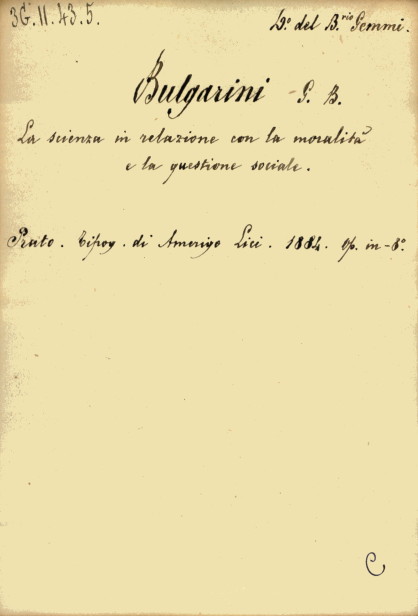 3G.11.43.5.
D.º del B.rio Gemmi.
Bulgarini G. B.
La scienza in relazione con la moralità
e la questione sociale.
Prato. Tipog. di Amerigo Lici. 1884. Op. in-8º.
C